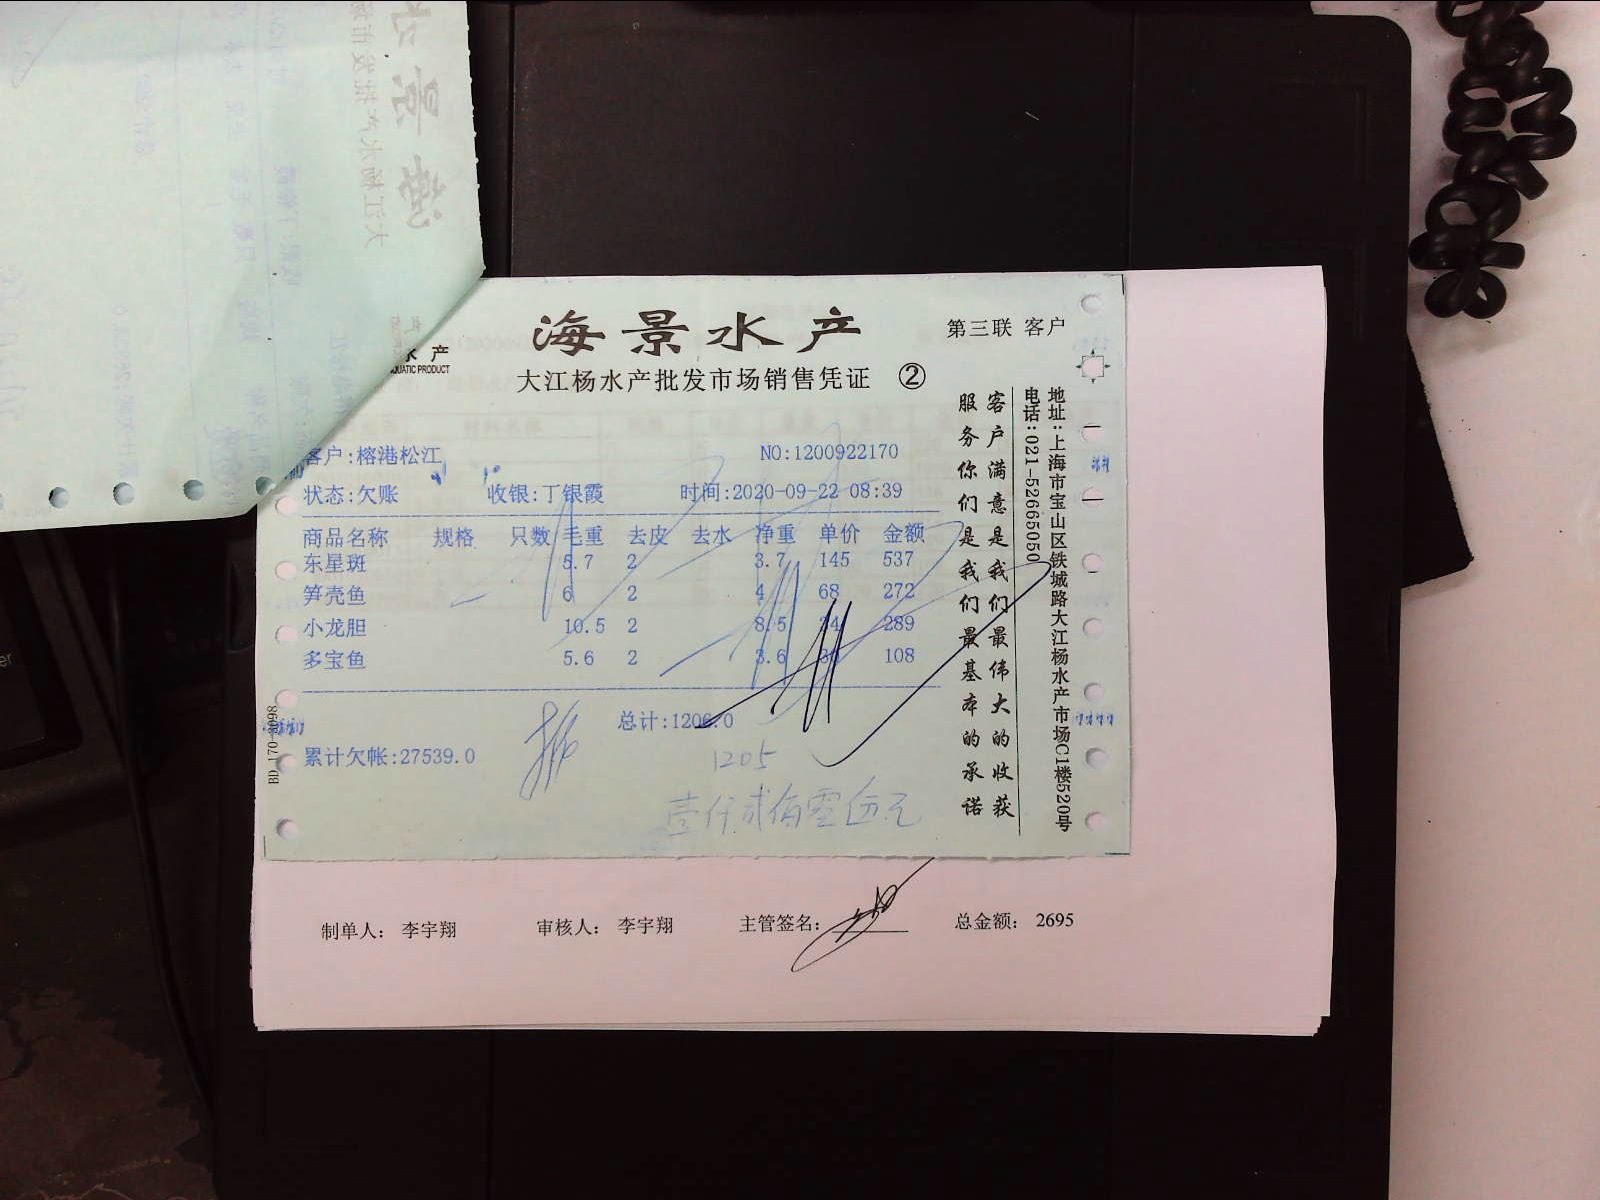 海景水产
第三联 客户
水产
QUATIC PRODUCT
大江杨水产批发市场销售凭证 ②
客户:榕港松江 NO:1200922170
状态:欠账 收银:丁银霞 时间:2020-09-22 08:39
商品名称 规格 只数 毛重 去皮 去水 净重 单价 金额
东星斑 5.7 2 3.7 145 537
笋壳鱼 6 2 4 68 272
小龙胆 10.5 2 8.5 34 289
多宝鱼 5.6 2 3.6 108
总计:1206.0
累计欠帐:27539.0
1205
壹仟贰佰零伍元
客户满意是我们最伟大的收获
服务你们是我们最基本的承诺
地址:上海市宝山区铁城路大江杨水产市场C1楼520号
电话:021-52665050
制单人: 李宇翔 审核人: 李宇翔 主管签名: 总金额: 2695